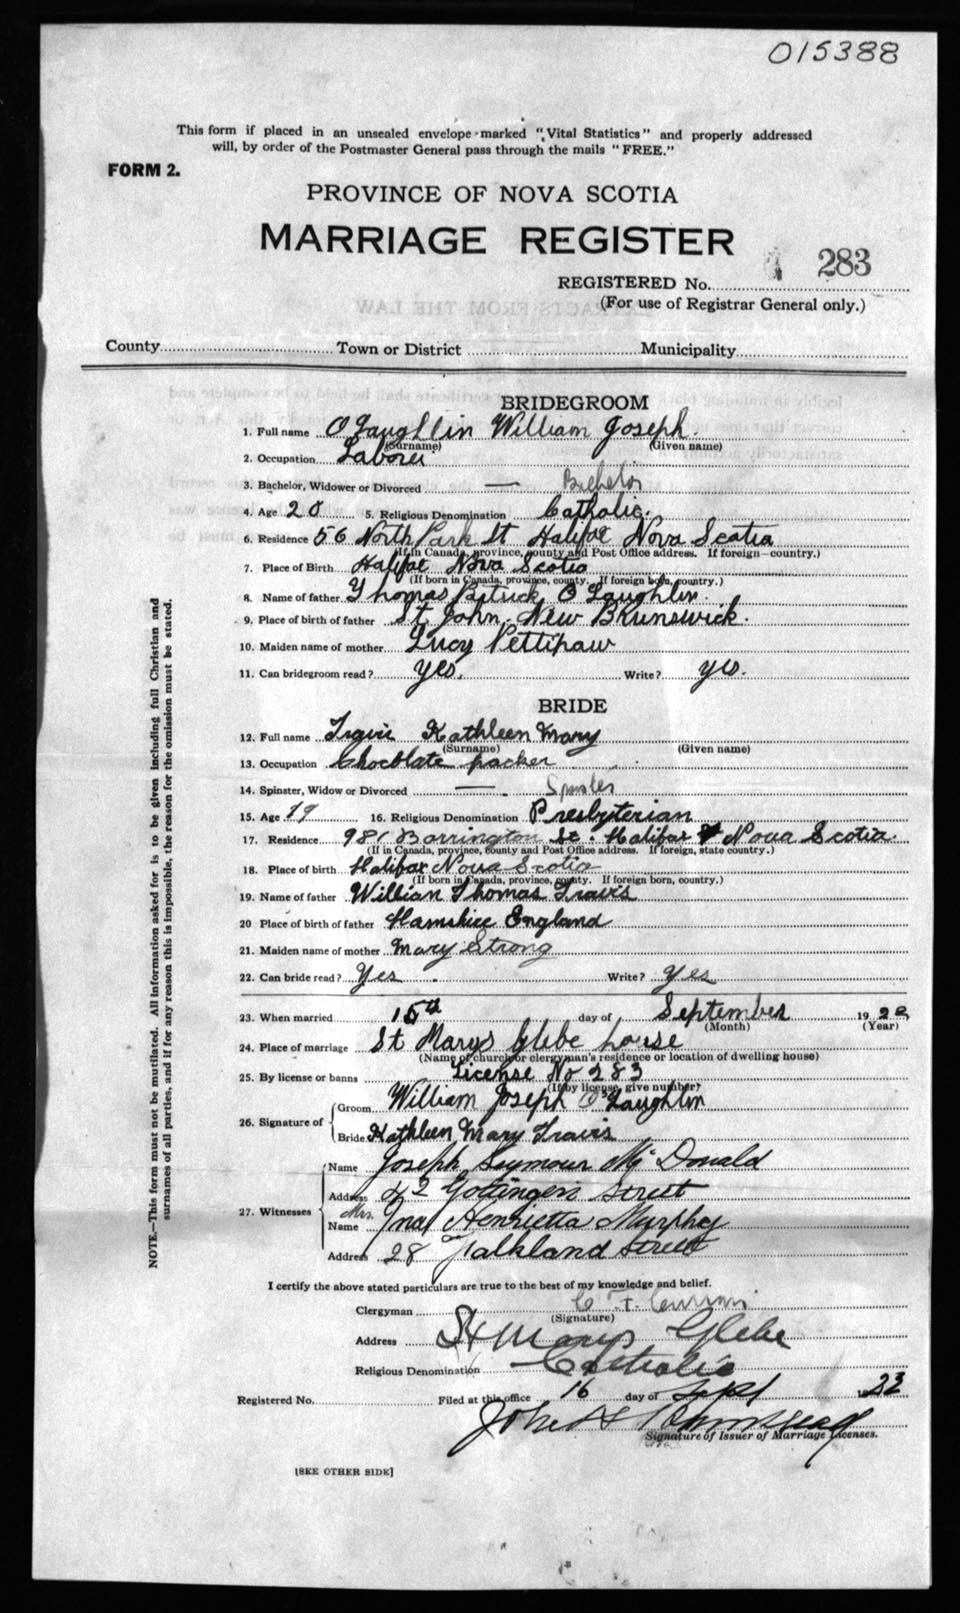 015388
This form if placed in an unsealed envelope marked "Vital Statistics" and properly addressed
will, by order of the Postmaster General pass through the mails "FREE."
FORM 2.
PROVINCE OF NOVA SCOTIA
MARRIAGE REGISTER
283
REGISTERED No.
(For use of Registrar General only.)
County Town or District Municipality
BRIDEGROOM
1. Full name O'Laughlin William Joseph
(Surname) (Given name)
2. Occupation Laborer
3. Bachelor, Widower or Divorced — Bachelor
4. Age 20 5. Religious Denomination Catholic.
6. Residence 56 North Park St Halifax Nova Scotia
(If in Canada, province, county and Post Office address. If foreign—country.)
7. Place of Birth Halifax Nova Scotia
(If born in Canada, province, county. If foreign born, country.)
8. Name of father Thomas Patrick O'Laughlin.
9. Place of birth of father St John, New Brunswick.
10. Maiden name of mother Lucy Pettipaw
11. Can bridegroom read? yes. Write? yes.
BRIDE
12. Full name Travis Kathleen Mary
(Surname) (Given name)
13. Occupation Chocolate packer
14. Spinster, Widow or Divorced —
15. Age 19 16. Religious Denomination Presbyterian
17. Residence 981 Barrington St. Halifax Nova Scotia.
(If in Canada, province, county and Post Office address. If foreign, state country.)
18. Place of birth Halifax Nova Scotia
(If born in Canada, province, county. If foreign born, country.)
19. Name of father William Thomas Travis
20 Place of birth of father Hamshire England
21. Maiden name of mother Mary Strong
22. Can bride read? Yes . Write? Yes
23. When married 15th day of September 1922
(Month) (Year)
24. Place of marriage St Marys Glebe house
(Name of church or clergyman's residence or location of dwelling house)
25. By license or banns License No 283
(If by license, give number)
26. Signature of
Groom William Joseph O'Laughlin
Bride Kathleen Mary Travis
27. Witnesses
Name Joseph Seymour Mc Donald
Address 42 Gottingen Street
Name Mrs. Ina Henrietta Murphy
Address 28 Falkland Street
I certify the above stated particulars are true to the best of my knowledge and belief.
Clergyman C. F. Curran
(Signature)
Address St Marys Glebe
Religious Denomination Catholic
Registered No. Filed at this office 16 day of Sept 22
John H
Signature of Issuer of Marriage Licenses.
[SEE OTHER SIDE]
NOTE.—This form must not be mutilated. All information asked for is to be given including full Christian and
surnames of all parties, and if for any reason this is impossible, the reason for the omission must be stated.